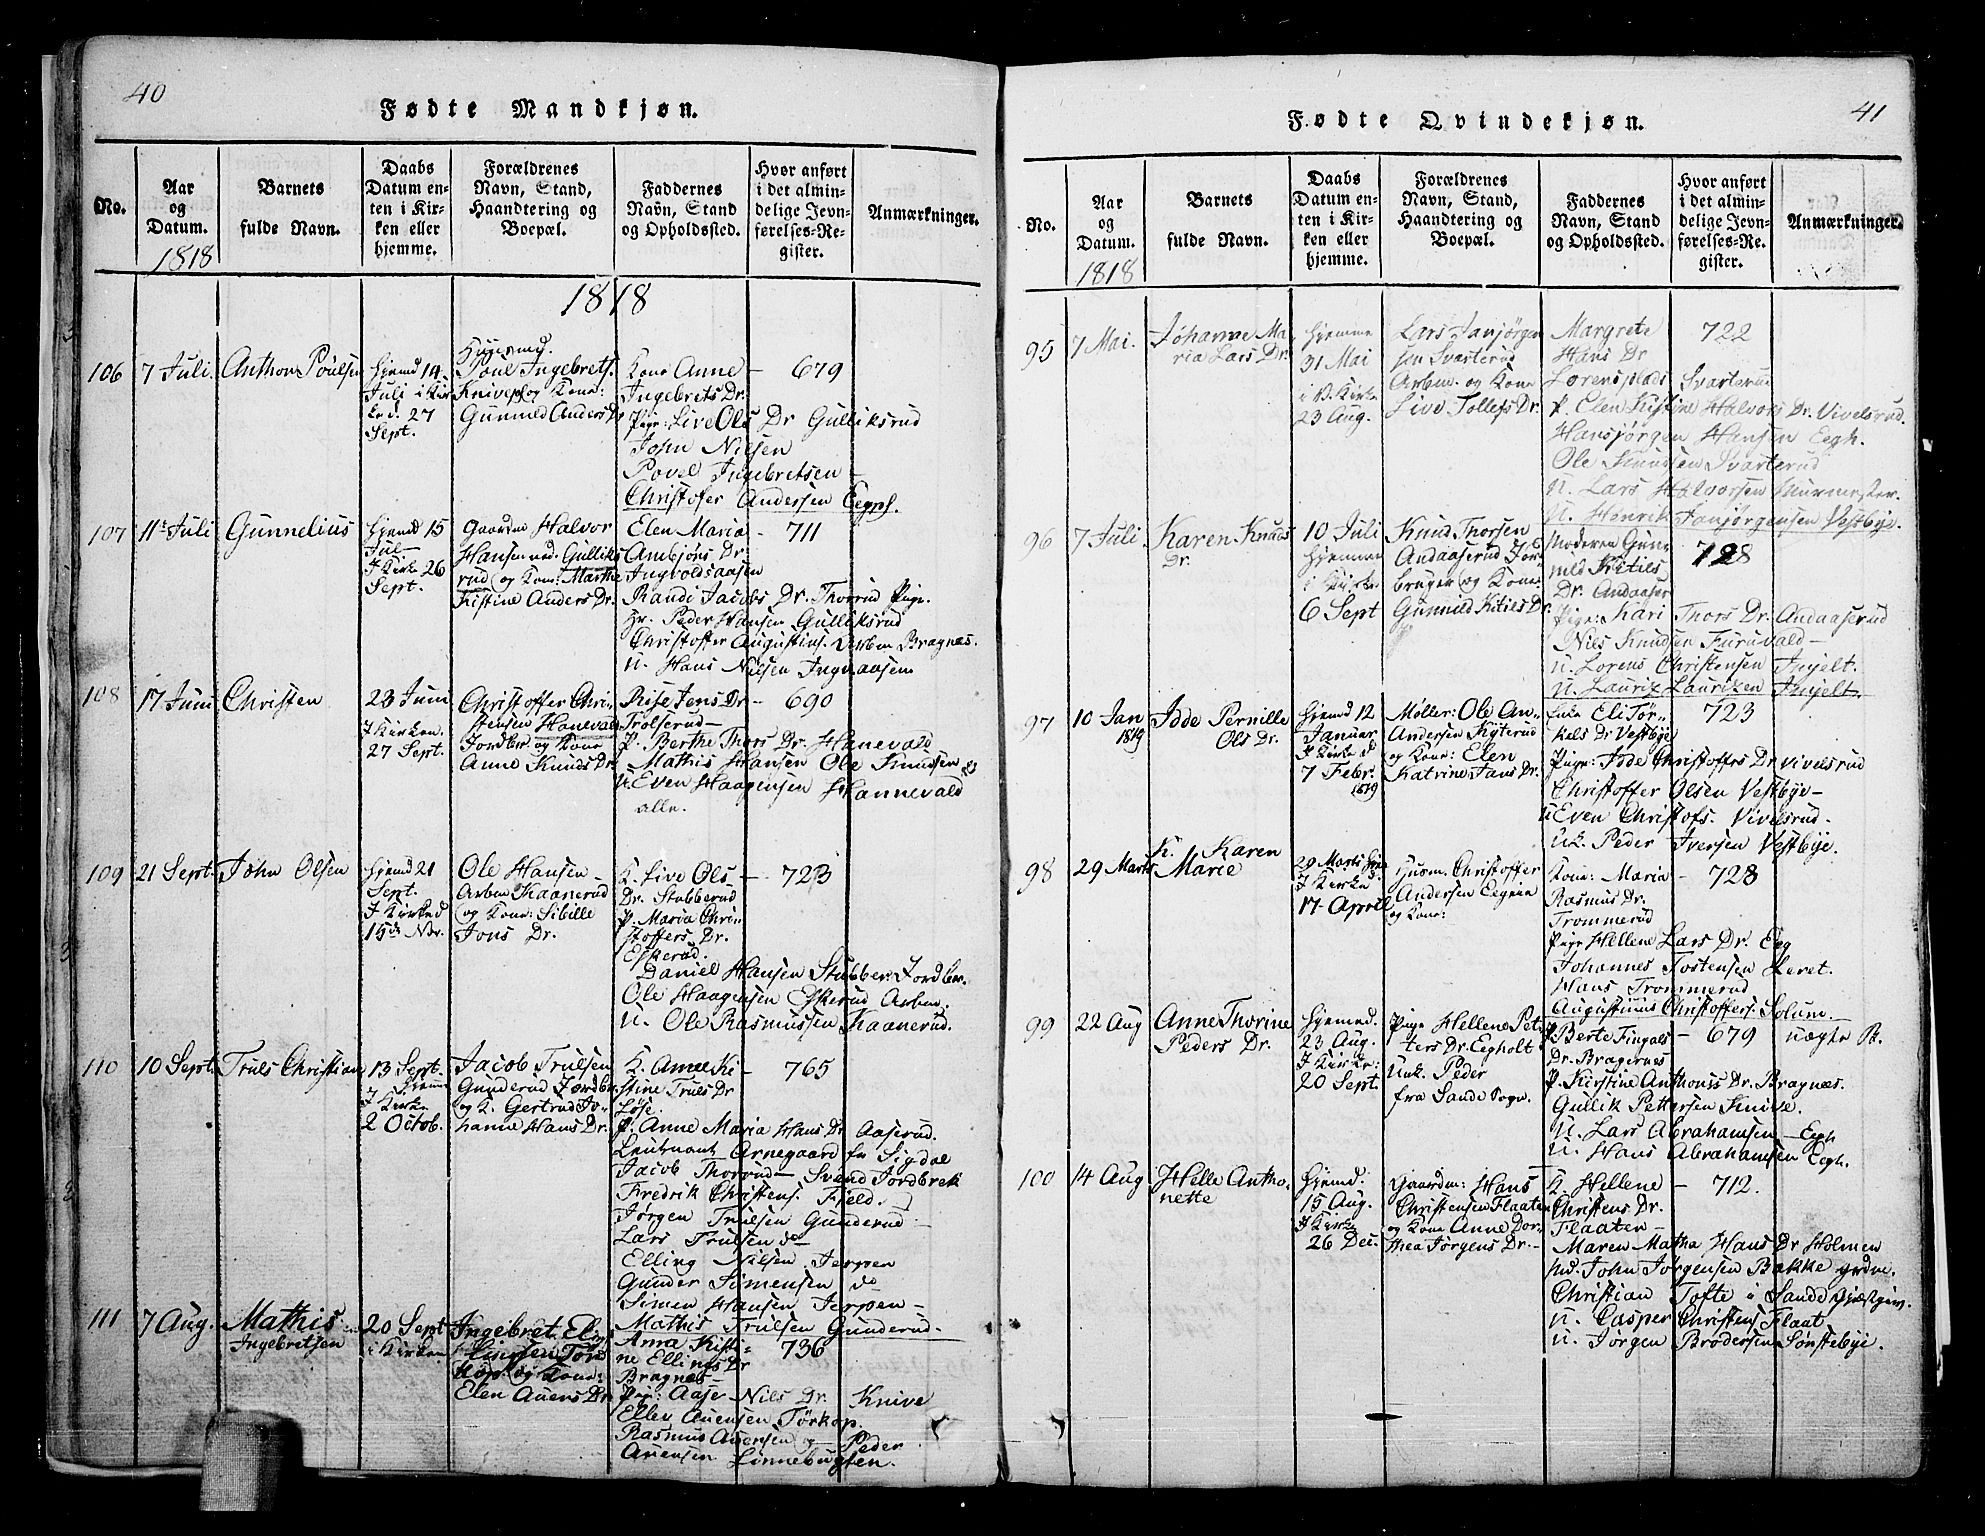 40
Fødte Mandkjøn.
No.
Aar
og
Datum.
1818
Barnets
fulde Navn.
Daabs
Datum en-
ten i Kir-
ken eller
hjemme.
Forældrenes
Navn, Stand,
Haandtering og
Boepæl.
Faddernes
Navn, Stand
og Opholdssted.
Hvor anført
i det almin-
delige Jevn-
førelses-Re-
gister.
Anmærkninger.
1818
106
7 Juli.
Anthon Poulsen
Hjemd 14
Juli i Kir
ke d. 27
Sept.
Poul Ingebrets.
Knive og Kone:
Gunnild Anders Dr
Kone Anne
Ingebrets Dr.
Pige: Live Ols Dr Gulliksrud
John Nilsen
Povel Ingebretsen
Christofer Andersen
679
107
11te Juli
Gunnelius
Hjemd 15
Jul
I Kirke 26
Sept.
Gaardm Halvor
Hansen Gulliks
rud og Kone: Marthe
Kistine Anders Dr.
Elen Maria
Ambjørs Dr.
Ingvoldsaasen
Randi Jacobs Dr. Thorrud Pige.
Peder Hansen Gulliksrud
Christoffer Augustins. Arben Bragnæs.
U. Hans Nilsen Ingvaasen
711
108
17 Juni
Christen
23 Juni
I Kirken.
27 Sept.
Christoffer Chri-
stensen Hanevald
Jordbr. og Kone
Anne Knuds Dr.
Rise Jens Dr
Trolserud
P. Berthe Thors Dr. Hanevald
Mathis Hansen Ole Knudsen
U. Even Haagensen Hannevald
alle.
690
109
21 Sept.
John Olsen
Hjemd 21
Sept.
I Kirked
15de Nov.
Ole Hansen
Arben Kaanerud
og Kone: Sibille
Jons Dr.
K. Live Ols
Dr. Stubberud
P. Maria Chri-
stoffers Dr.
Eskerud.
Daniel Hansen Stubber Jordbr.
Ole Haagensen Eskerud Arben.
U. Ole Rasmussen Kaanerud.
723
110
10 Sept.
Truls Christian
13 Sept.
Hjemme
I Kirke
2 Octob.
Jacob Trulsen
Gunderud Jordbr.
og K. Gertrud Jo-
hanne Hans Dr.
K. Anne Ki-
stine Truls Dr
Løse.
P. Anne Maria Hans Dr Aaserud.
Lieutnant Arnegaard fr Sigdal
Jacob Thorrud Svend Jordbrek
Fredrik Christens. Fjeld.
Jørgen Trulsen Gunderud
Lars Trulsen do
Elling Nilsen Jerpen
Gunder Simensen do
Simen Hansen Jerpen
Mathis Trulsen Gunderud.
765
111
7 Aug.
Mathis
Ingebretsen
20 Sept
i Kirken
Ingebret
Tør
kop. og Kone:
Elen Auens Dr
Anna Kisti-
ne Ellings Dr
Bragnæs
Pige: Aase Nils Dr. Knive
Ellev Auensen Tørkop.
Rasmus Auensen og Peder
Auensen Linnebugten.
736
41
Fødte Qvindekjøn.
No.
Aar
og
Datum.
1818
Barnets
fulde Navn.
Daabs
Datum en-
ten i Kir-
ken eller
hjemme.
Forældrenes
Navn, Stand,
Haandtering og
Boepæl.
Faddernes
Navn, Stand
og Opholdssted.
Hvor anført
i det almin-
delige Jevn-
førelses-Re-
gister.
Anmærkninger.
95
7 Mai.
Johanne Ma
ria Lars Dr.
Hjemme
31 Mai
i Kirke
23 Aug.
Lars Janjørgen
sen Svarterud
Arben. og Kone
Live Tollefs Dr.
Margrete
Hans Dr
Lorensplads Svarterud
P. Elen Kistine Halvors Dr. Vivelsrud.
Hansjørgen Hansen Eegh.
Ole Knudsen Svarterud
U. Lars Halvorsen Murmester.
U. Henrik Janjørgensen Vestbye.
722
96
7 Juli
Karen Knuds
Dr.
10 Juli
Hjemme
i Kirke
6 Sept
Knud Thorsen
Andaaserud Jor
bruger og Kone
Gunnild Kitils Dr.
Moderen Gun-
nild Kitils
Dr. Andaaser
Pige: Kari Thors Dr. Andaaserud
Nils Knudsen Furuvald
U. Lorens Christensen Injelt.
U. Lauriz Laurizen Injelt.
728
97
10 Jan
1819
Idde Pernille
Ols Dr.
Hjemd 12
Januar
I Kirke d
7 Febr.
1819
Møller: Ole An-
Andersen Kyterud
og Kone: Elen
Katrine Jans Dr.
Enke Eli Tør-
kels Dr Vestbye
Pige: Idde Christoffers Dr Vivelsrud
Christoffer Olsen Vestbye
U Even Christofs. Vivelsrud.
Uk. Peder Iversen Vestbye.
723
98
29 Marts
K. Karen
Marie
29 Marts Hje
I Kirke
17 April
Husm. Christoffer
Andersen Eegnia
og Kone:
Kone: Maria
Rasmus Dr.
Trommerud
Pige Hellene Lars Dr. Eeg
Johannes Tostensen Heret.
Hans Trommerud
Augustinus Christoffers. Solum
728
99
22 Aug
Anne Thorine
Peders Dr.
Hjemed.
23 Aug.
I Kirke:
20 Sept.
Pige Hellene Pet-
ters Dr. Eegholt
Unk. Peder
fra Sande Sogn.
P. Berte Fingals
Dr. Bragernes
P. Kirstine Anthonis Dr. Bragnæs.
Gullik Pettersen Knive.
U. Lars Abrahamsen Eegh
U. Hans Abrahamsen Eegh.
679
uægte B.
100
14 Aug
Helle Antho-
nette
Hjemd.
15 Aug.
I Kirke
26 Dec.
Gaardm: Hans
Christensen Flaaten
og Kone Anne Dor-
thea Jørgens Dr.
K. Hellene
Christens Dr.
Flaaten
Maren Matha Hans Dr Holmen
John Jørgensen Bakke
Christian Tofte i Sande Gjæstgiv.
U. Casper Christens Flaat
U. Jørgen Brødersen Sønstebye.
712.